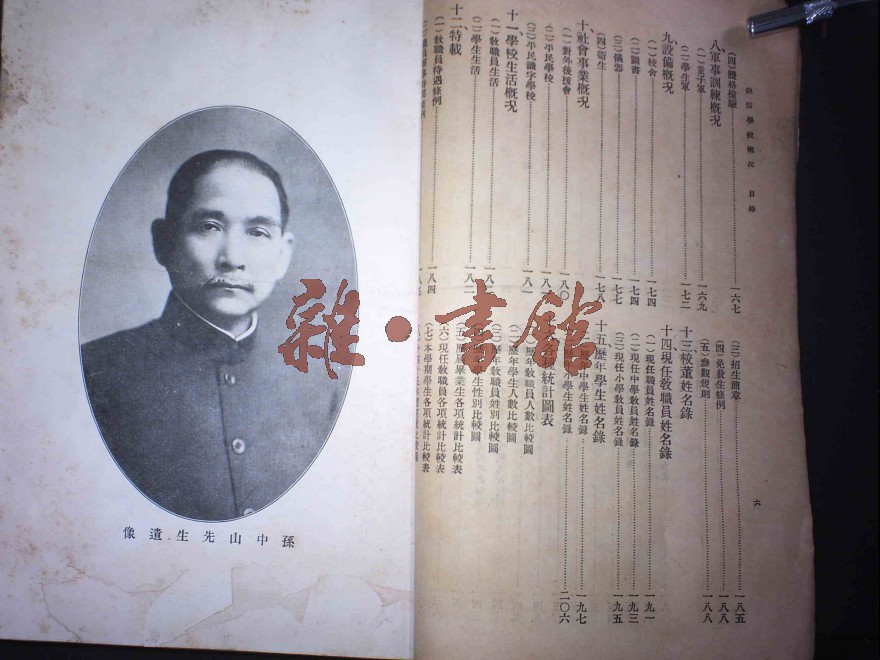 執信學校概況　目錄
(四)體格檢驗……一六七
八軍事訓練概況
(一)童子軍……一六九
(二)學生軍……一七二
九設備概況
(一)校舍……一七四
(二)圖書……一七四
(三)儀器……一七七
(四)衛生……一七八
十社會事業概況
(一)對外後援會……一八〇
(二)平民學校
(三)平民識字學校……一八一
十一學校生活概況
(一)教職員生活
(二)學生生活……一八二
十二特載
(一)教職員待遇條例……一八四
(三)招生簡章……一八五
(四)免費生條例……一八八
(五)參觀規則……一八八
十三校董姓名錄
十四現任教職員姓名錄
(一)現任職員姓名錄……一九一
(二)現任中學教員姓名錄……一九三
(三)現任小學教員姓名錄……一九五
十五歷年學生姓名錄
中學生姓名錄……一九七
小學生姓名錄……二〇六
統計圖表
歷年教職員人數比較圖
(二)歷年學生人數比較圖
歷年教職員性別比較圖
學生性別比較圖
(五)歷屆畢業生各項統計比較表
(六)現任教職員各項統計比較表
(七)本學期學生各項統計比較表
六
孫中山先生遺像
雜·書館